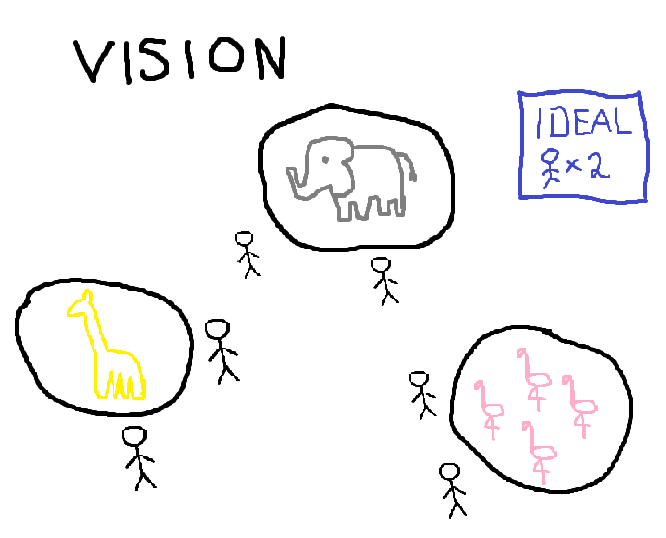 VISION
IDEAL
×2